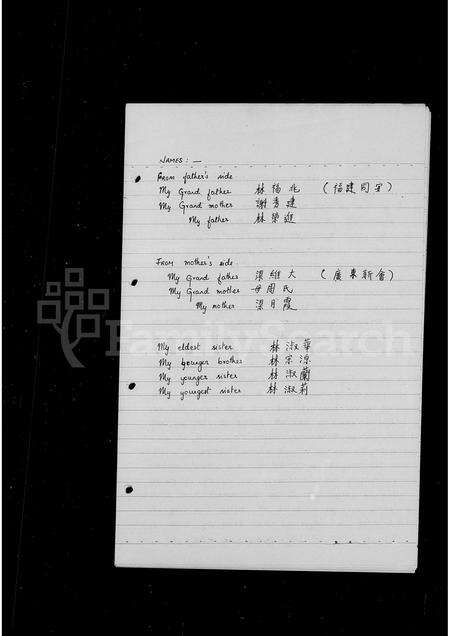 NAMES: —
From father's side
My Grand father 林福兆 (福建同安)
My Grand mother 謝秀蓮
My father 林榮進
From mother's side
My Grand father 梁維大 (廣東新會)
My Grand mother 周氏
My mother 梁月霞
My eldest sister 林淑華
My younger brother 林宗
My younger sister 林淑蘭
My youngest sister 林淑莉
FamilySearch